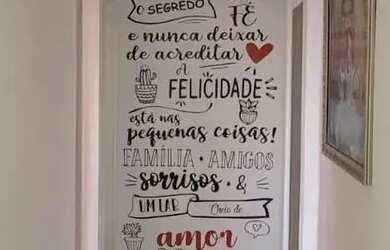 O SEGREDO
FÉ
e nunca deixar
de acreditar
A
FELICIDADE
está nas
pequenas coisas!
FAMÍLIA • AMIGOS
sorrisos • &
UM LAR Cheio de
amor